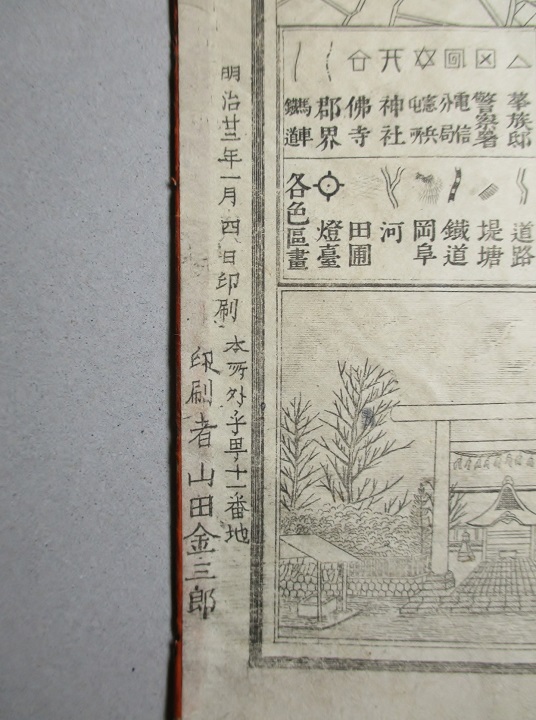 華族邸
警察署
電信分局
憲兵屯所
神社
佛寺
郡界
馬車鐵道
道路
堤塘
鐵道
岡阜
河
田圃
燈臺
各色區畫
明治廿三年一月四日印刷
本所外手町十一番地
印刷者 山田金三郎